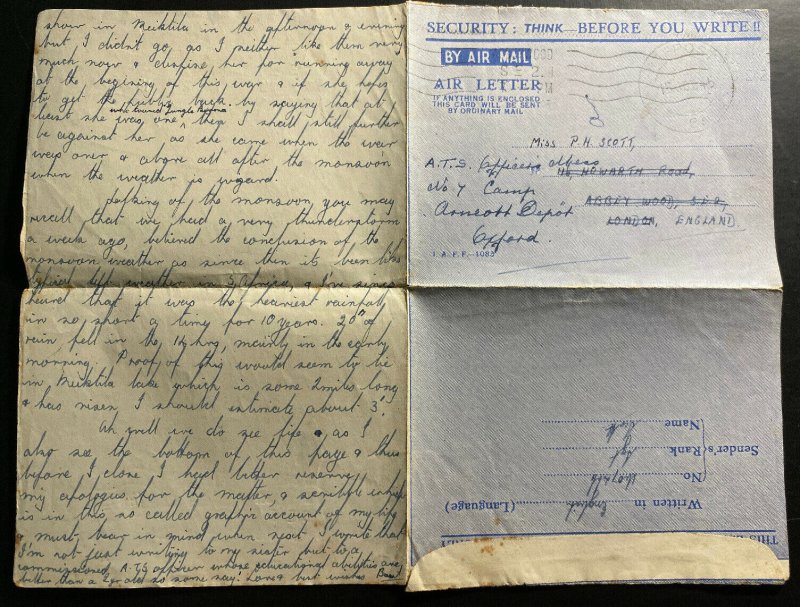 show in Meiktila in the afternoon & evening
but I didn't go, as I neither like them very
much now & despise her for running away
at the begining of this war & if she hopes
to get the public back by saying that at
least she was one who toured Jungle Burma then I shall still further
be against her as she came when the war
was over & above all after the monsoon
when the weather is grand.
Talking of the monsoon, you may
recall that we had a very thunderstorm
a week ago, behind the confusion of the
monsoon weather as since then it been like
typical weather in S. Africa, & I've since
heard that it was the heaviest rainfall
in so short a time for 10 years. 20" of
rain fell in the 1½ hrs, mainly in the early
morning. Proof of this would seem to lie
in Meiktila lake which is some 2 miles long
& has risen I should intimate about 3'.
Ah well we do see life, as I
also see the bottom of this page & thus
before I close I had better reserve
my apologies for the matter & scribble which
is in this so called graphic account of my life
I must bear in mind when next I write that
I'm not just writing to my sister but to a
commissioned A.T.S officer whose educational abilities are
better than a 2 yr old so some say! Love & best wishes
SECURITY: THINK BEFORE YOU WRITE!!
BY AIR MAIL
AIR LETTER
IF ANYTHING IS ENCLOSED
THIS CARD WILL BE SENT
BY ORDINARY MAIL
Miss P.H. SCOTT,
A.T.S. Officers Mess
HOWARTH Road,
No 7 Camp
ABBEY WOOD, S.E.2,
Arncott Depôt
LONDON, ENGLAND.
Oxford.
I.A.F.F.-1083
Name
Sender's Rank
No
Written in English (Language)